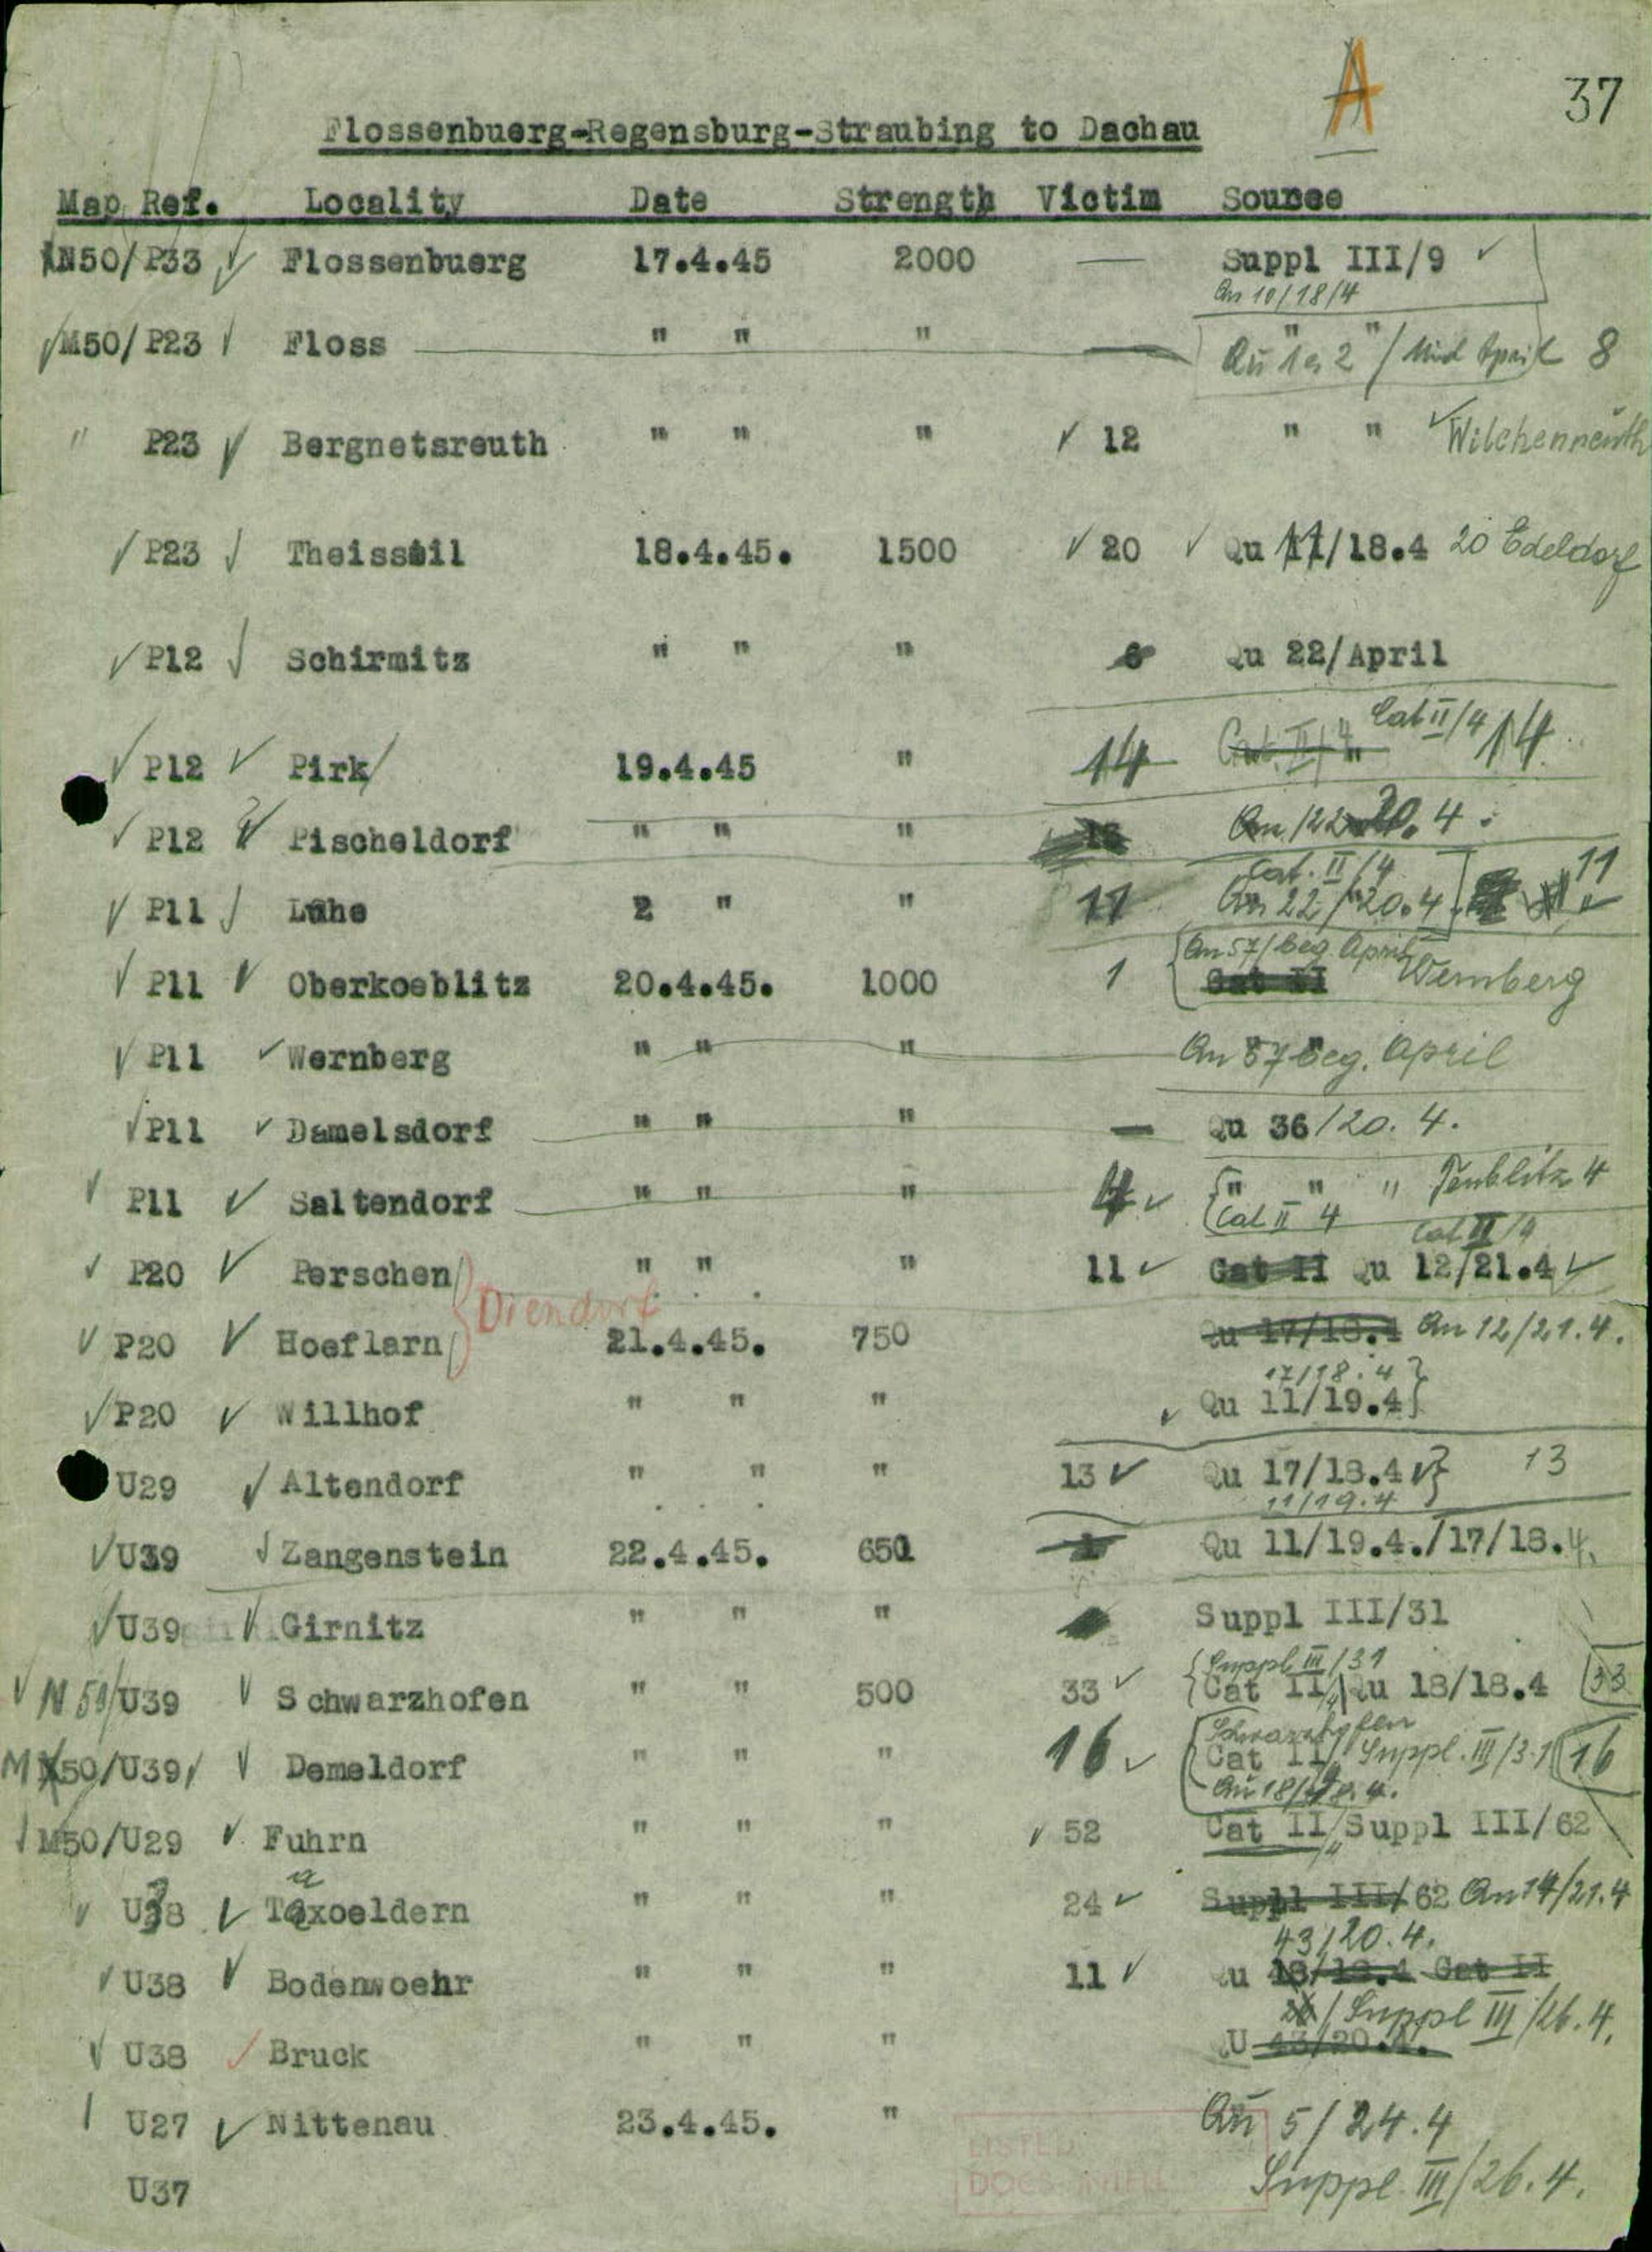 A
37
Flossenbuerg-Regensburg-Straubing to Dachau
Map Ref. Locality Date Strength Victim Source
N50/P33 Flossenbuerg 17.4.45 2000 — Suppl III/9
Qu 10/18/4
M50/P23 Floss " " " — " "
Qu 1 2 / Mid April 8
" P23 Bergnetsreuth " " " 12 " " Wilchenreuth
P23 Theisseil 18.4.45. 1500 20 Qu 11/18.4 20 Edeldorf
P12 Schirmitz " " " 6 Qu 22/April
Cat II/4 14
P12 Pirk 19.4.45 " 14 Cat II/4 "
P12 Pischeldorf " " " Qu 22 20.4.
Cat. II/4 11
P11 Luhe 2 " " 11 Qu 22/20.4
Qu 57/beg. April
P11 Oberkoeblitz 20.4.45. 1000 1 Cat II Wernberg
P11 Wernberg " " " Qu 57 beg. April
P11 Damelsdorf " " " — Qu 36/20. 4.
P11 Saltendorf " " " 4 " " " Teublitz 4
Cat II 4
Cat II/4
P20 Perschen " " " 11 Cat II Qu 12/21.4
Diendorf
P20 Hoeflarn 21.4.45. 750 Qu 17/18.4 Qu 12/21.4.
17/18.4
P20 Willhof " " " Qu 11/19.4
U29 Altendorf " " " 13 Qu 17/18.4 13
11/19.4
U39 Zangenstein 22.4.45. 650 1 Qu 11/19.4./17/18.4.
U39 Girnitz " " " Suppl III/31
Suppl III/31
N50/U39 Schwarzhofen " " 500 33 Cat II/4 Qu 18/18.4 33
Schwarzhofen
M50/U39 Demeldorf " " " 16 Cat II/ Suppl. III/31 16
Qu 18/18.4.
M50/U29 Fuhrn " " " 52 Cat II/4 Suppl III/62
a
U38 Taxoeldern " " " 24 Suppl III/62 Qu 14/21.4
43/20.4.
U38 Bodenwoehr " " " 11 Qu 18/18.4 Cat II
/Suppl III/26.4.
U38 Bruck " " " QU 43/20.4.
U27 Nittenau 23.4.45. " Qu 5/24.4
U37 Suppl. III/26.4.
LISTED
DOCS